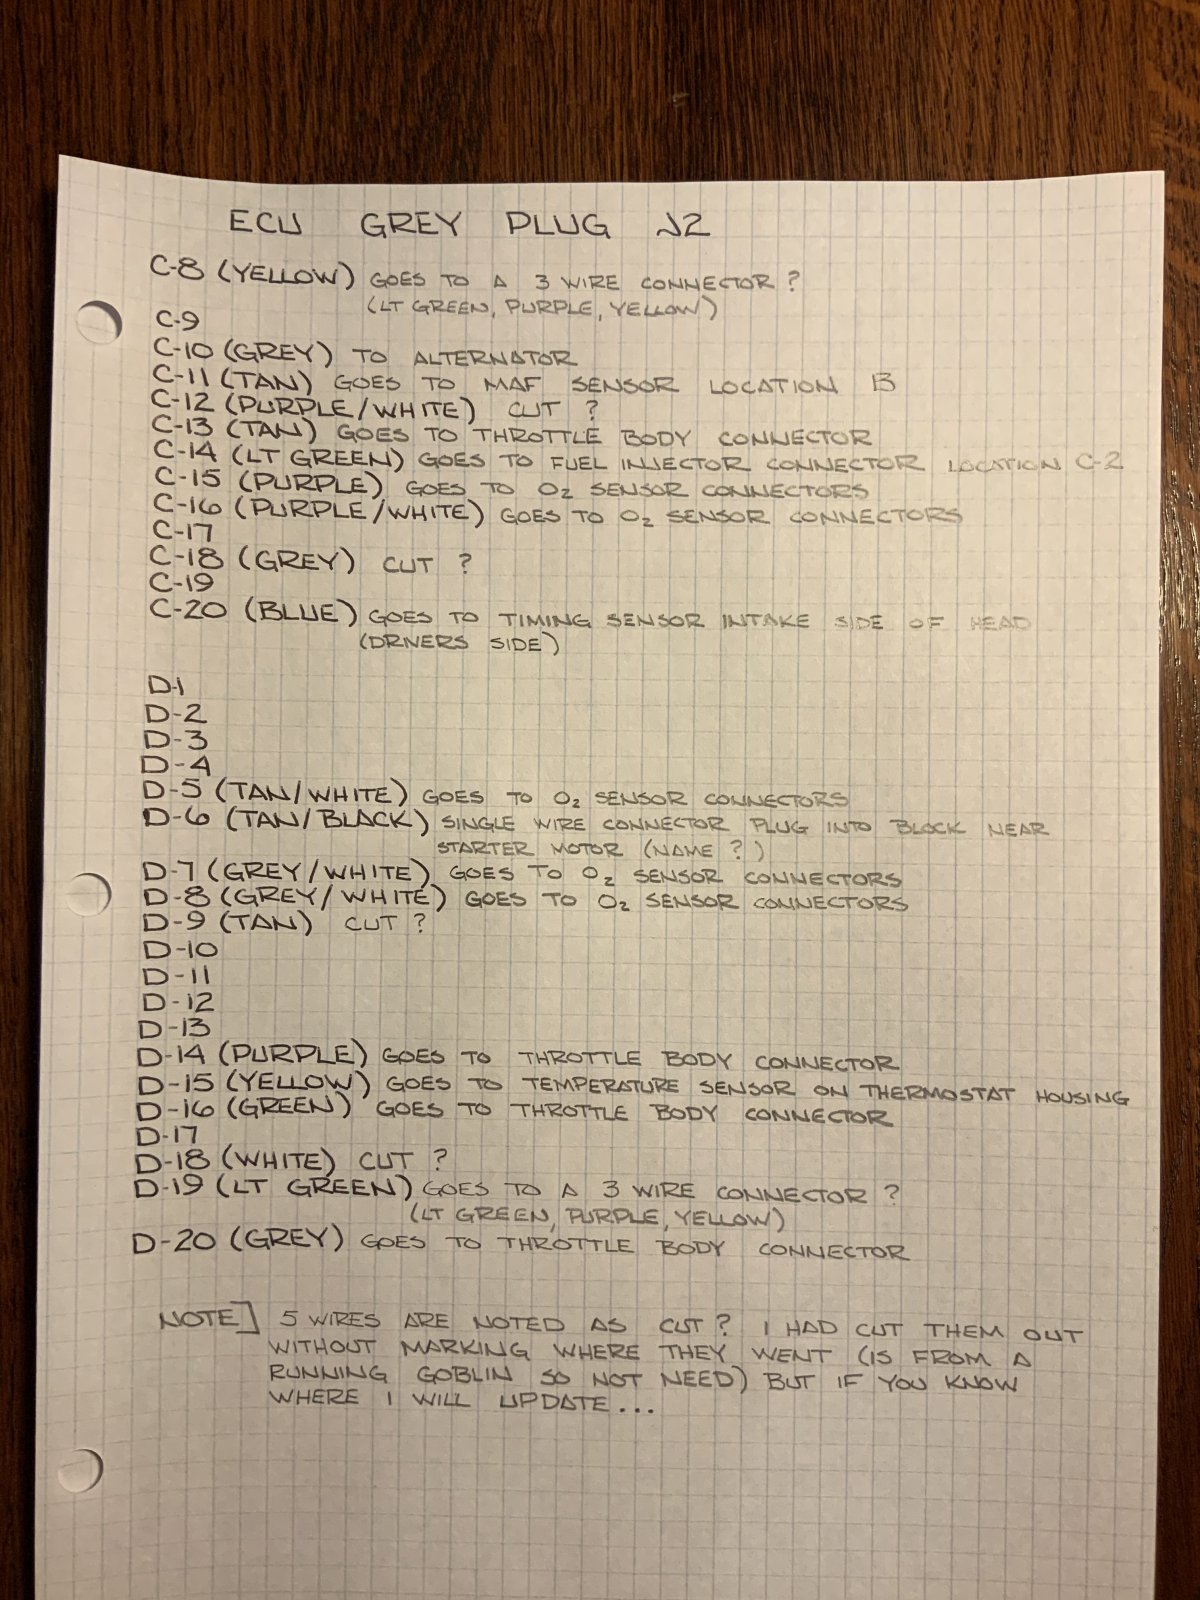 ECU GREY PLUG J2
C-8 (YELLOW) GOES TO A 3 WIRE CONNECTOR?
(LT GREEN, PURPLE, YELLOW)
C-9
C-10 (GREY) TO ALTERNATOR
C-11 (TAN) GOES TO MAF SENSOR LOCATION B
C-12 (PURPLE/WHITE) CUT ?
C-13 (TAN) GOES TO THROTTLE BODY CONNECTOR
C-14 (LT GREEN) GOES TO FUEL INJECTOR CONNECTOR LOCATION C-2
C-15 (PURPLE) GOES TO O₂ SENSOR CONNECTORS
C-16 (PURPLE/WHITE) GOES TO O₂ SENSOR CONNECTORS
C-17
C-18 (GREY) CUT ?
C-19
C-20 (BLUE) GOES TO TIMING SENSOR INTAKE SIDE OF HEAD
(DRIVERS SIDE)
D-1
D-2
D-3
D-4
D-5 (TAN/WHITE) GOES TO O₂ SENSOR CONNECTORS
D-6 (TAN/BLACK) SINGLE WIRE CONNECTOR PLUG INTO BLOCK NEAR
STARTER MOTOR (NAME ?)
D-7 (GREY/WHITE) GOES TO O₂ SENSOR CONNECTORS
D-8 (GREY/WHITE) GOES TO O₂ SENSOR CONNECTORS
D-9 (TAN) CUT ?
D-10
D-11
D-12
D-13
D-14 (PURPLE) GOES TO THROTTLE BODY CONNECTOR
D-15 (YELLOW) GOES TO TEMPERATURE SENSOR ON THERMOSTAT HOUSING
D-16 (GREEN) GOES TO THROTTLE BODY CONNECTOR
D-17
D-18 (WHITE) CUT ?
D-19 (LT GREEN) GOES TO A 3 WIRE CONNECTOR ?
(LT GREEN, PURPLE, YELLOW)
D-20 (GREY) GOES TO THROTTLE BODY CONNECTOR
NOTE] 5 WIRES ARE NOTED AS CUT? I HAD CUT THEM OUT
WITHOUT MARKING WHERE THEY WENT (IS FROM A
RUNNING GOBLIN SO NOT NEED) BUT IF YOU KNOW
WHERE I WILL UPDATE...